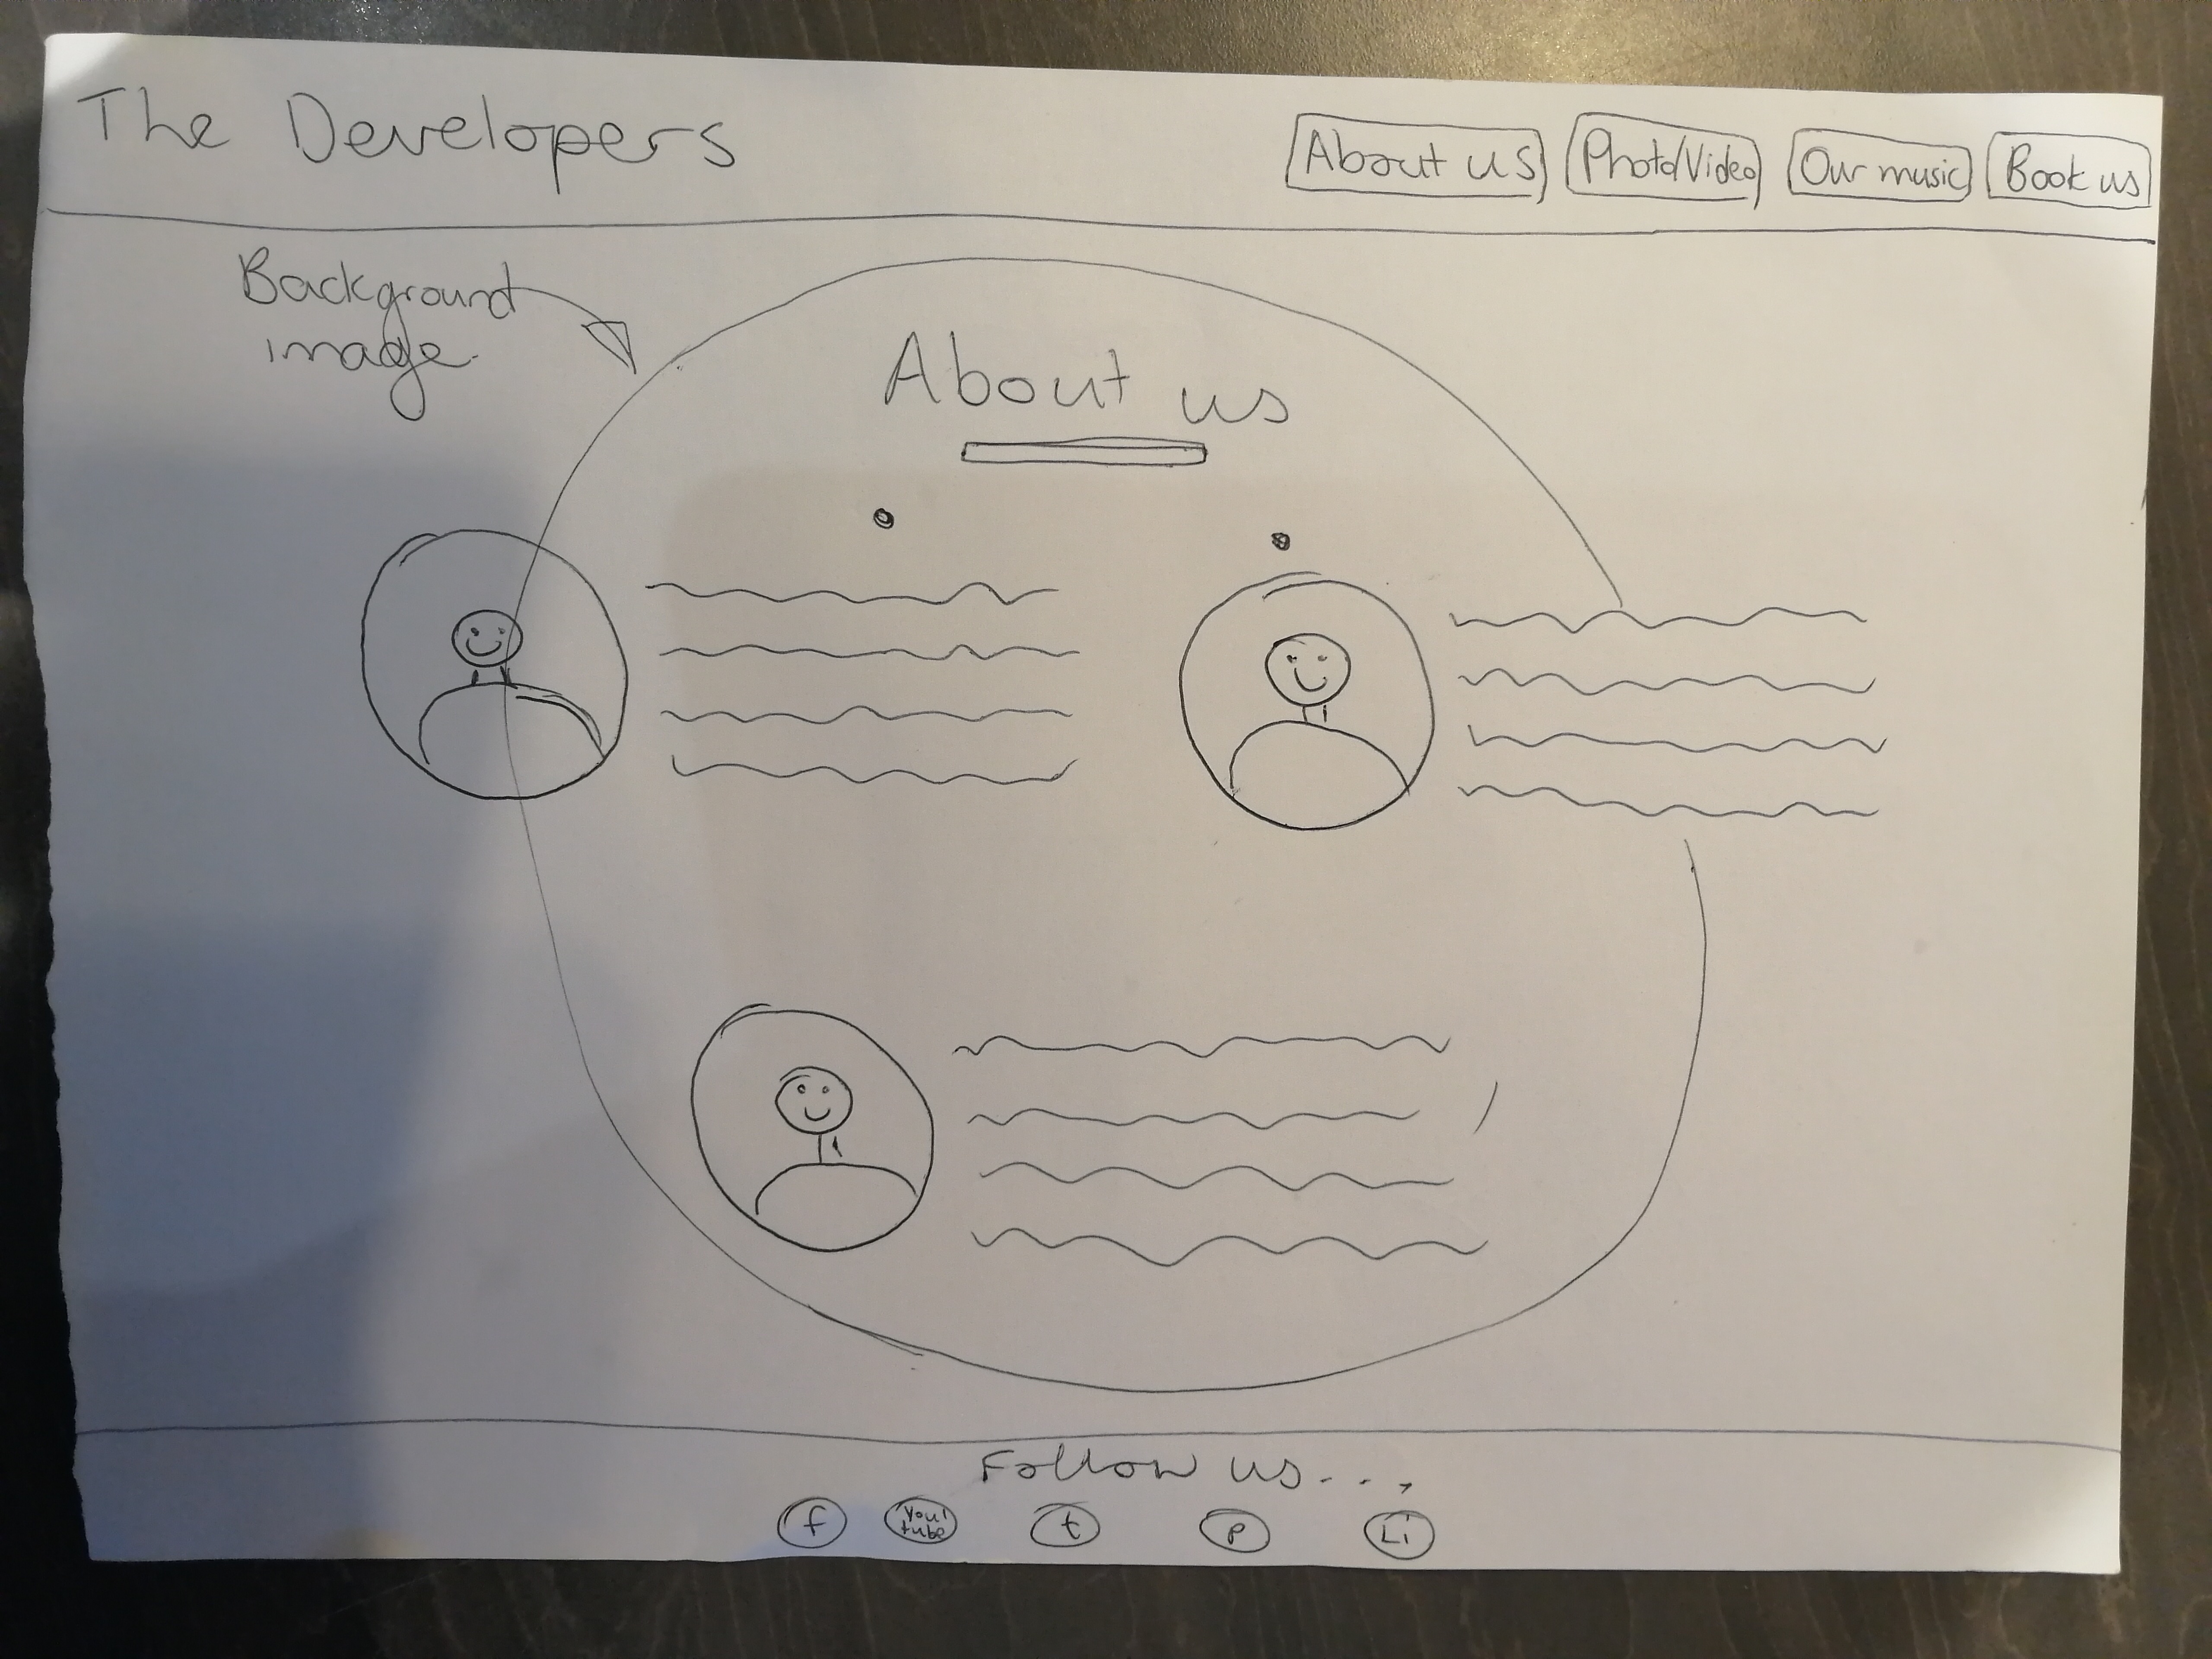 The Developers
About us
Photo/Video
Our music
Book us
Background
image
About us
Follow us...
f
You
tube
t
p
Li